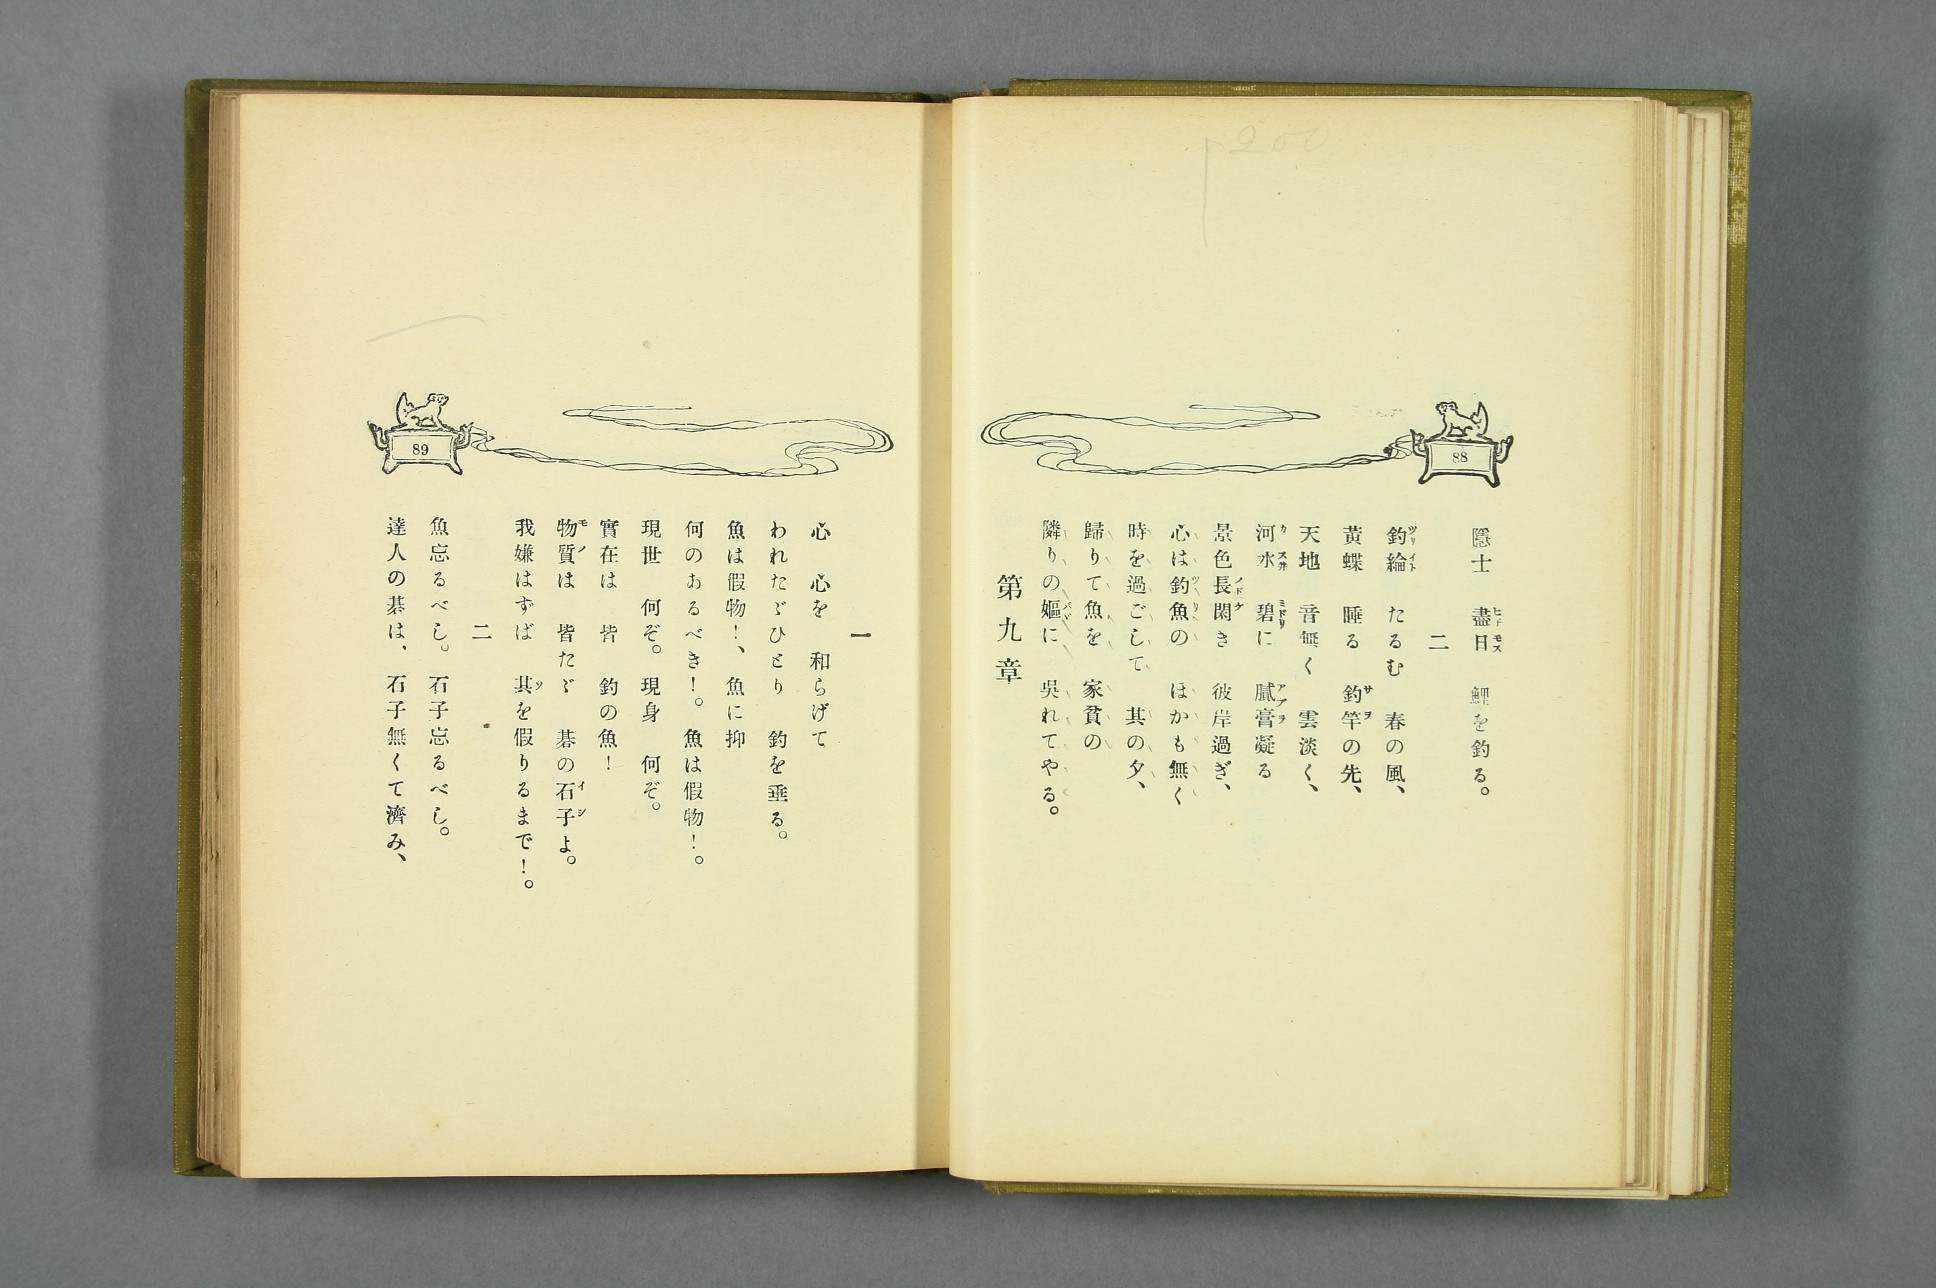 88
隱士　盡日　鯉を釣る。
二
釣綸　たるむ　春の風、
黃蝶　睡る　釣竿の先、
天地　音無く　雲淡く、
河水　碧に　膩膏凝る
景色長閑き　彼岸過ぎ、
心は釣魚の　ほかも無く
時を過ごして　其の夕、
歸りて魚を　家貧の
隣りの嫗に　吳れてやる。
第九章
89
一
心　心を　和らげて
われたゞひとり　釣を垂る。
魚は假物！、魚に抑
何のあるべき！。魚は假物！。
現世　何ぞ。現身　何ぞ。
實在は　皆　釣の魚！
物質は　皆たゞ　碁の石子よ。
我嫌はずば　其を假りるまで！。
二
魚忘るべし。石子忘るべし。
達人の碁は、石子無くて濟み、